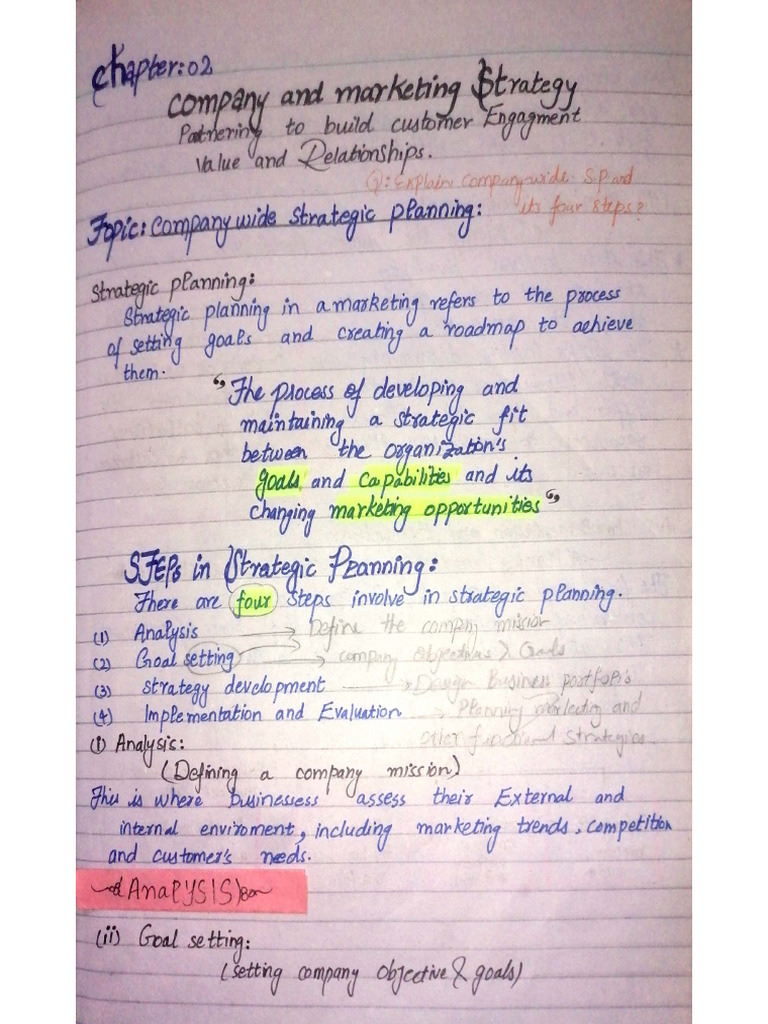 Chapter:02
company and marketing Strategy
Partnering to build customer Engagment
value and Relationships.
Q: Explain companywide S.P and
its four steps?
Topic: companywide strategic planning:
Strategic planning:
Strategic planning in a marketing refers to the process
of setting goals and creating a roadmap to achieve
them.
"The process of developing and
maintaining a strategic fit
between the organization's
goals and capabilities and its
changing marketing opportunities"
STEPs in Strategic Planning:
There are four steps involve in strategic planning.
(1) Analysis → Define the company mission
(2) Goal setting → company objectives & Goals
(3) strategy development → Design Business portfolio
(4) Implementation and Evaluation → Planning marketing and
other functional strategies.
(i) Analysis:
(Defining a company mission)
This is where businessess assess their External and
internal enviroment, including marketing trends, competition
and customer's needs.
AnalYSIS
(ii) Goal setting:
(setting company objective & goals)